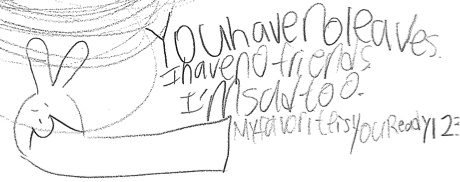 You have no leaves.
I have no friends
I'm sad too.
My favorite is you Ready 1 2 3